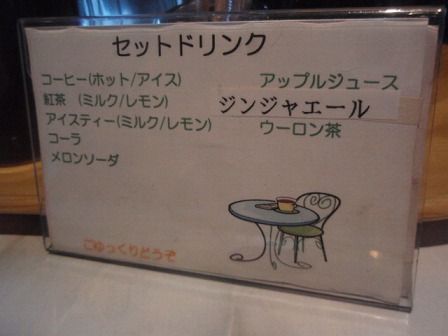 セットドリンク
コーヒー(ホット/アイス)
紅茶 (ミルク/レモン)
アイスティー(ミルク/レモン)
コーラ
メロンソーダ
アップルジュース
ジンジャエール
ウーロン茶
ごゆっくりどうぞ